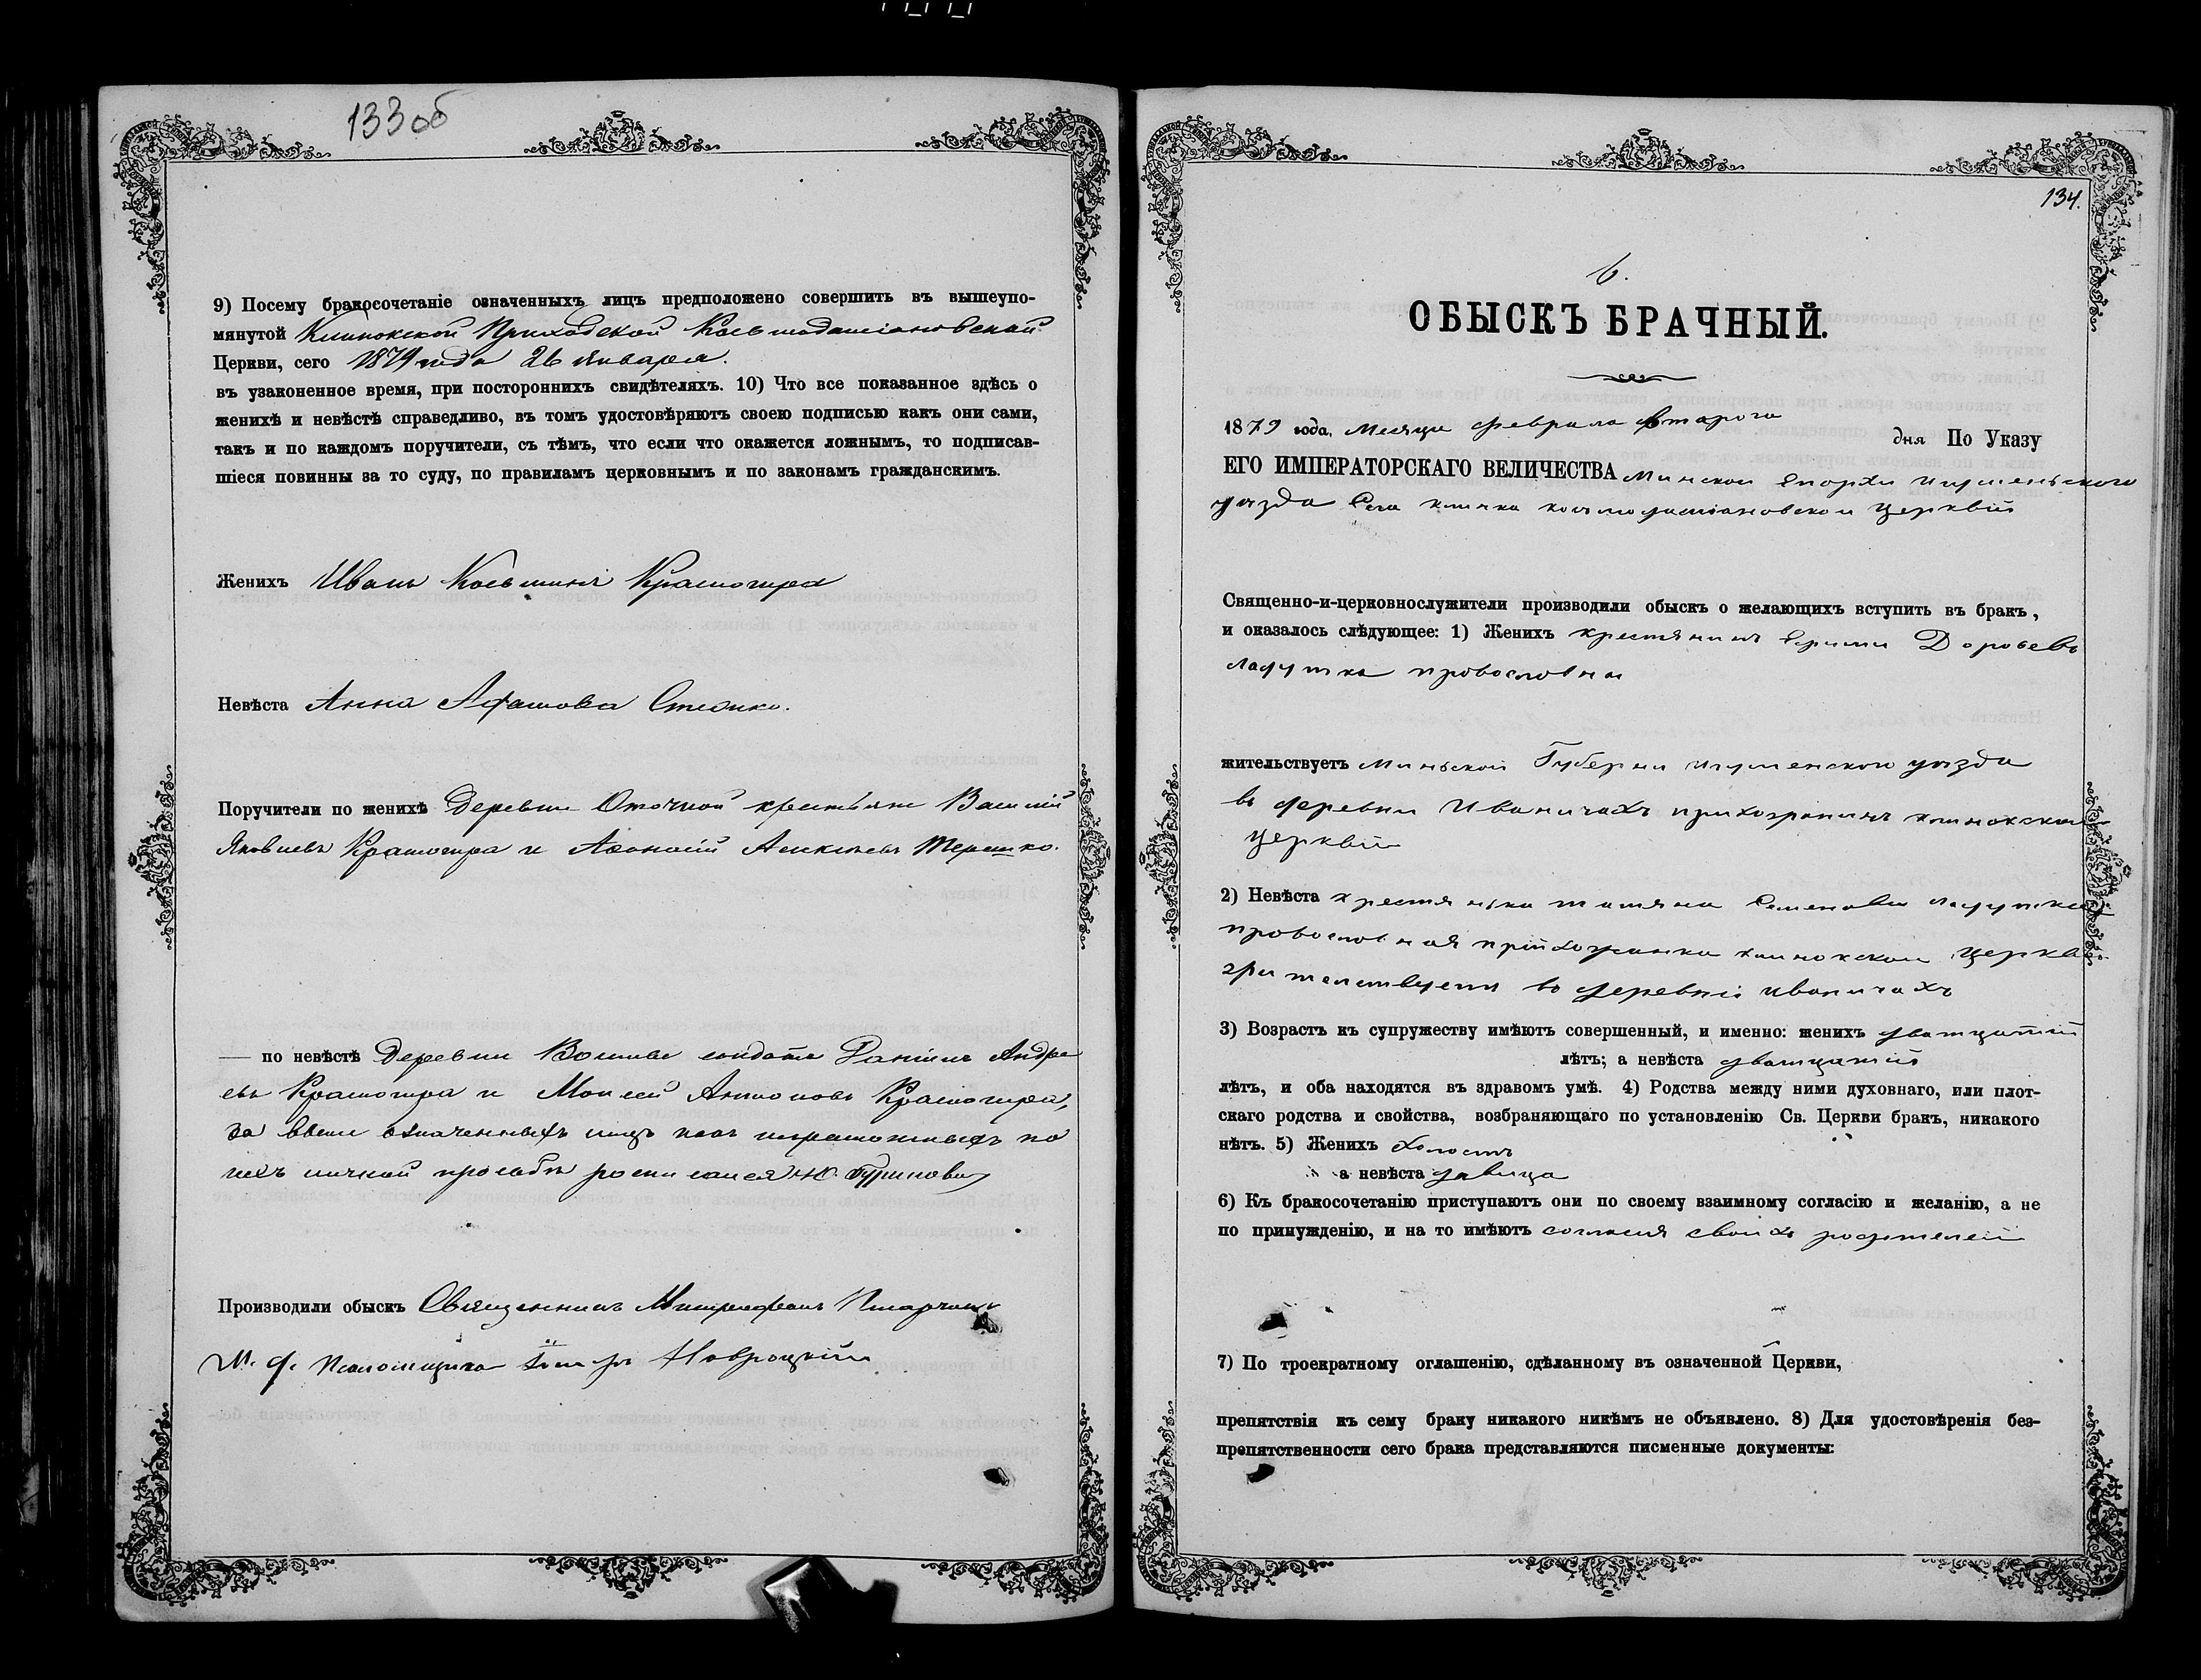 133 об
9) Посему бракосочетаніе означенныхъ лицъ предположено совершить въ вышеупо-
мянутой Клинокской Приходской Косьмодаміановской
Церкви, сего 1879 года 26 Января.
въ узаконенное время, при постороннихъ свидѣтеляхъ. 10) Что все показанное здѣсь о
женихѣ и невѣстѣ справедливо, въ томъ удостовѣряютъ своею подписью какъ они сами,
такъ и по каждомъ поручители, съ тѣмъ, что если что окажется ложнымъ, то подписав-
шіеся повинны за то суду, по правиламъ церковнымъ и по законамъ гражданскимъ.
Женихъ Иванъ Косьминъ
Невѣста Анна
Поручители по женихѣ Деревни крестьяне Василій
Яковлевъ и
— по невѣстѣ Деревни солдатъ Даніилъ Андре
евъ и Моисей Антоновъ
за всехъ означенныхъ лицъ неграмотныхъ по
ихъ личной прозьбѣ росписался
Производили обыскъ Священникъ Митрофанъ
И. д. Псаломщика Навроцкій
134.
6.
ОБЫСКЪ БРАЧНЫЙ.
1879 года, Месяца Февраля второго дня По Указу
ЕГО ИМПЕРАТОРСКАГО ВЕЛИЧЕСТВА Минской Епархи игуменьского
уезда Села клинка косьмодаміановской церквій
Священно-и-церковнослужители производили обыскъ о желающихъ вступить въ бракъ,
и оказалось слѣдующее: 1) Женихъ крестянинъ Дорофеевъ
лапутка провословны
жительствуетъ Миньской Губерни игуменского уезда
въ деревни Иваничахъ прихожанинъ клинокской
церквій
2) Невѣста крестянка татяна Семенова лапутка
провословная прихожанка клинокской церкви
жителствуетъ въ деревни иваничахъ
3) Возрастъ къ супружеству имѣютъ совершенный, и именно: женихъ двацатій
лѣтъ; а невѣста двацатій
лѣтъ, и оба находятся въ здравомъ умѣ. 4) Родства между ними духовнаго, или плот-
скаго родства и свойства, возбраняющаго по установленію Св. Церкви бракъ, никакого
нѣтъ. 5) Женихъ холостъ
а невѣста девица
6) Къ бракосочетанію приступаютъ они по своему взаимному согласію и желанію, а не
по принужденію, и на то имѣютъ согласия своихъ родителей
7) По троекратному оглашенію, сдѣланному въ означенной Церкви,
препятствія къ сему браку никакого никѣмъ не объявлено. 8) Для удостовѣренія без-
препятственности сего брака представляются писменные документы: